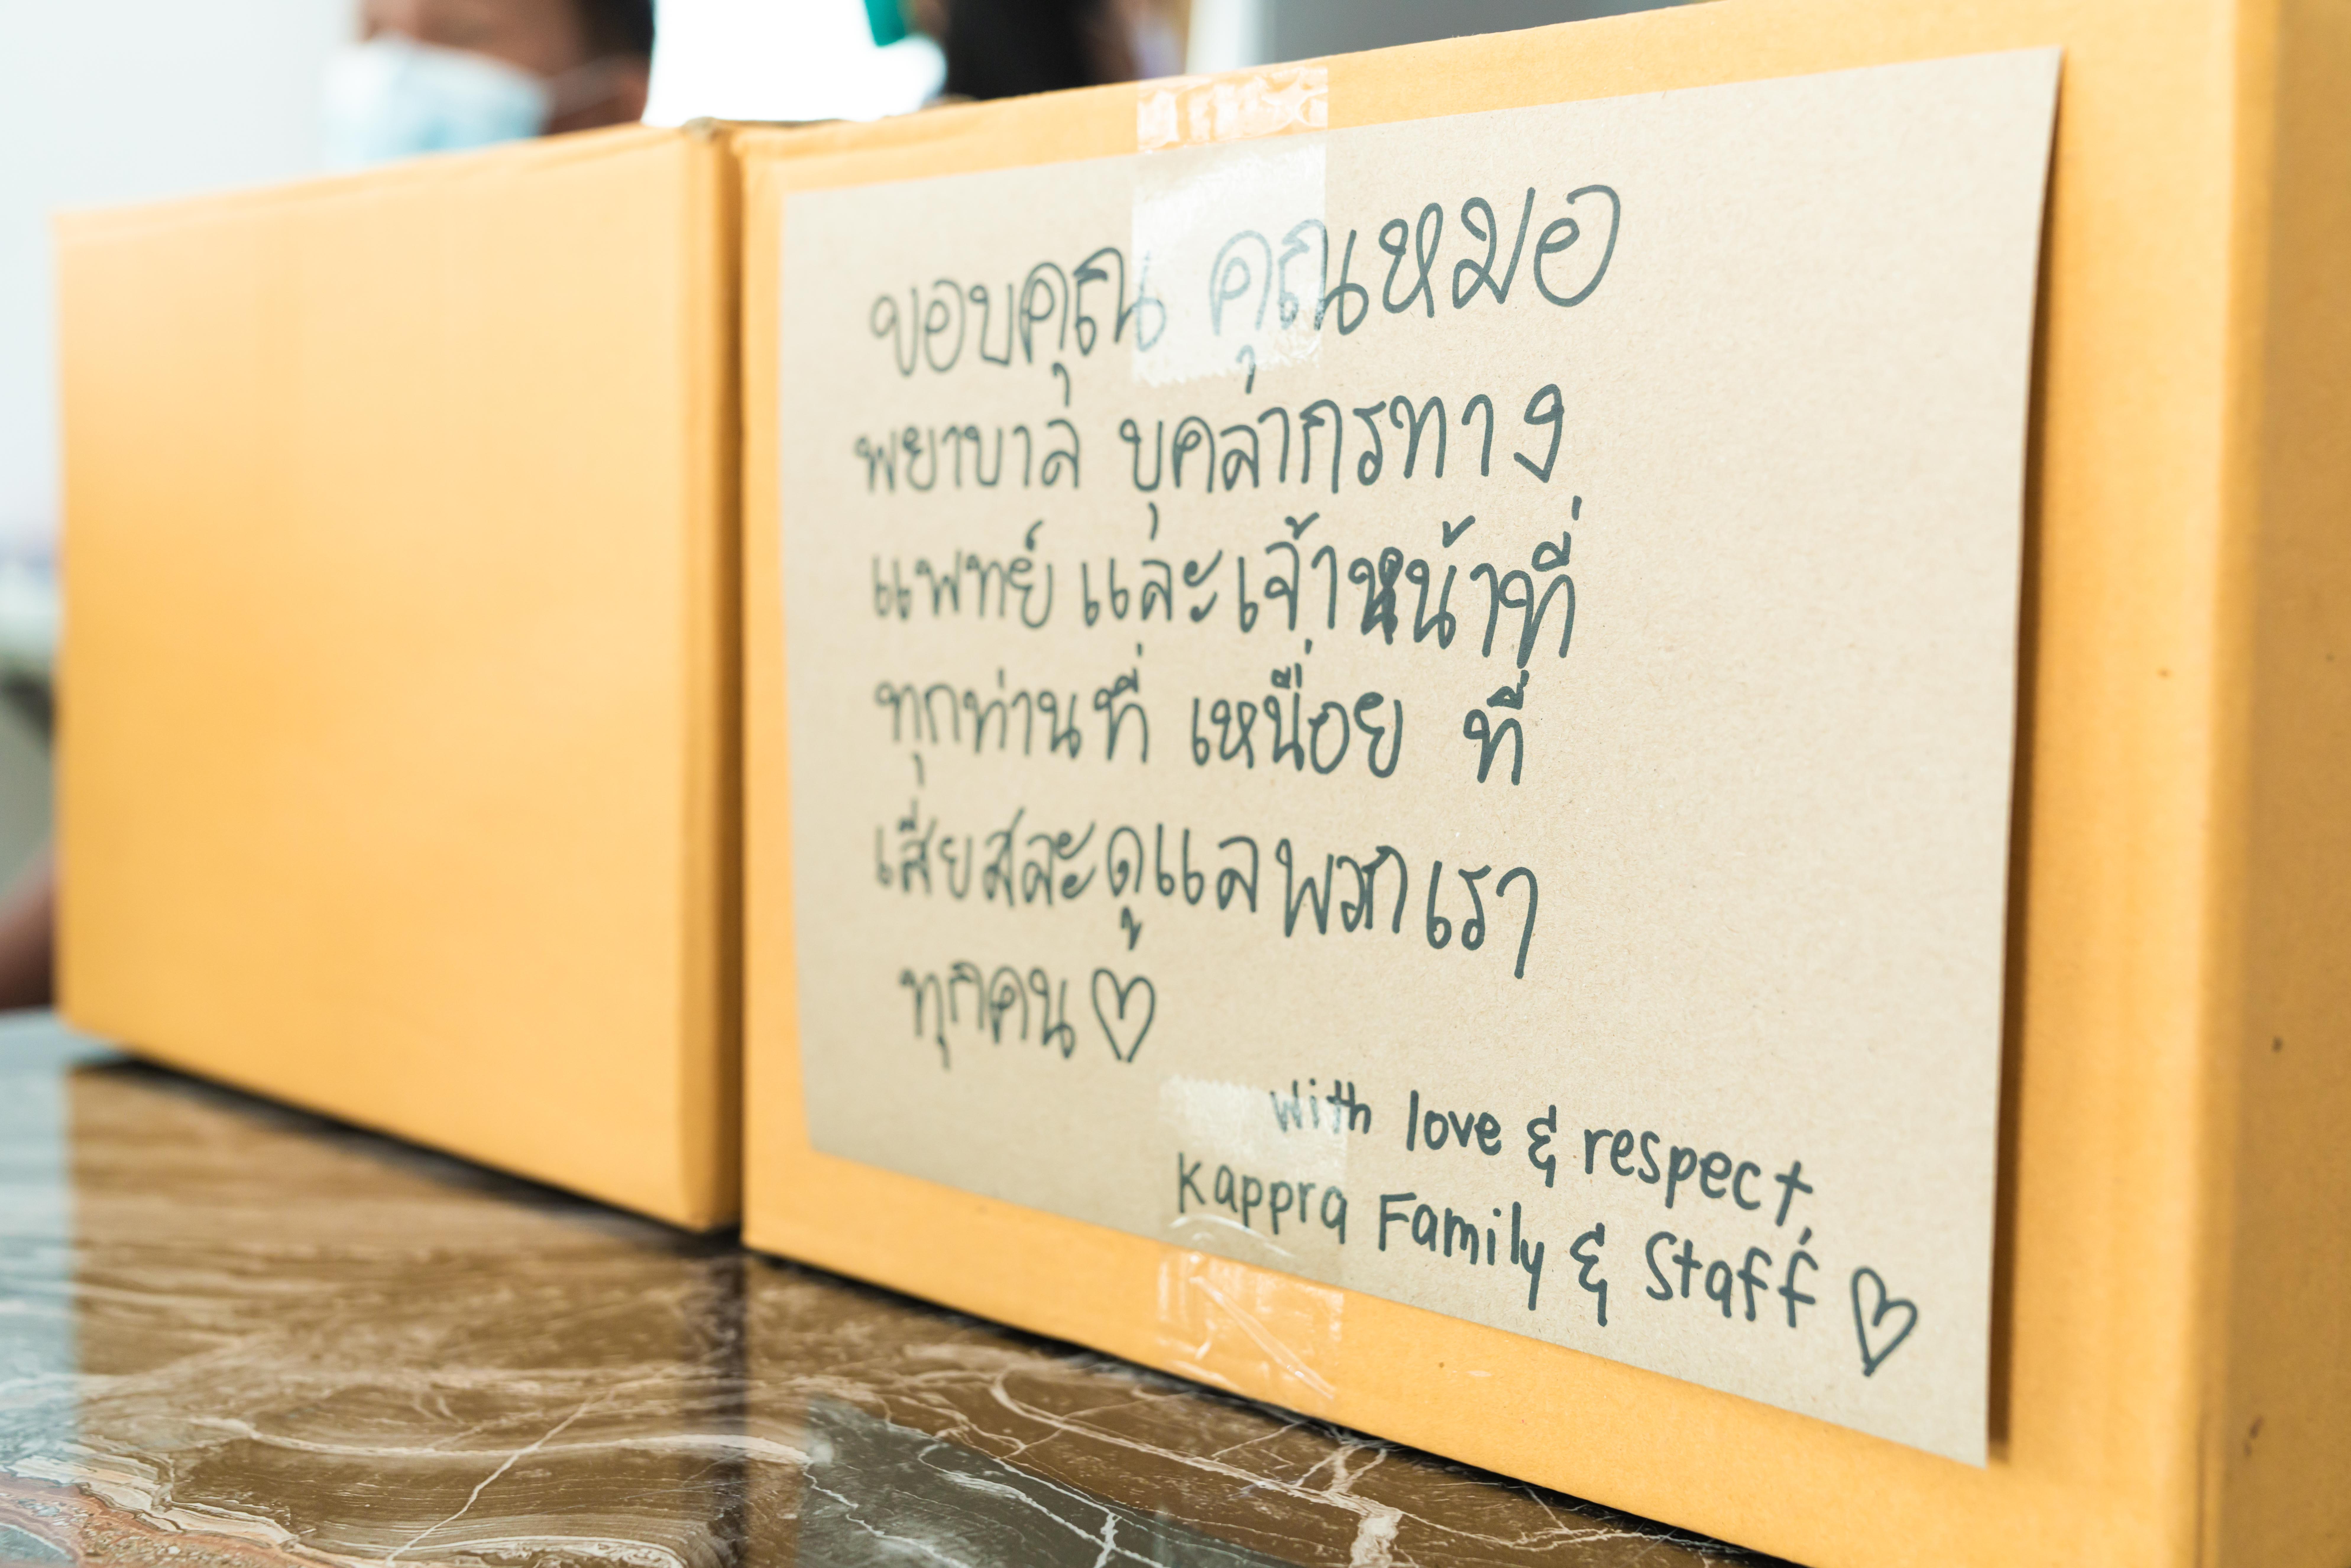 ขอบคุณ คุณหมอ
พยาบาล บุคลากรทาง
แพทย์ และเจ้าหน้าที่
ทุกท่านที่ เหนื่อย ที่
เสียสละดูแลพวกเรา
ทุกคน♡
With love & respect,
Kappra Family & Staff ♡